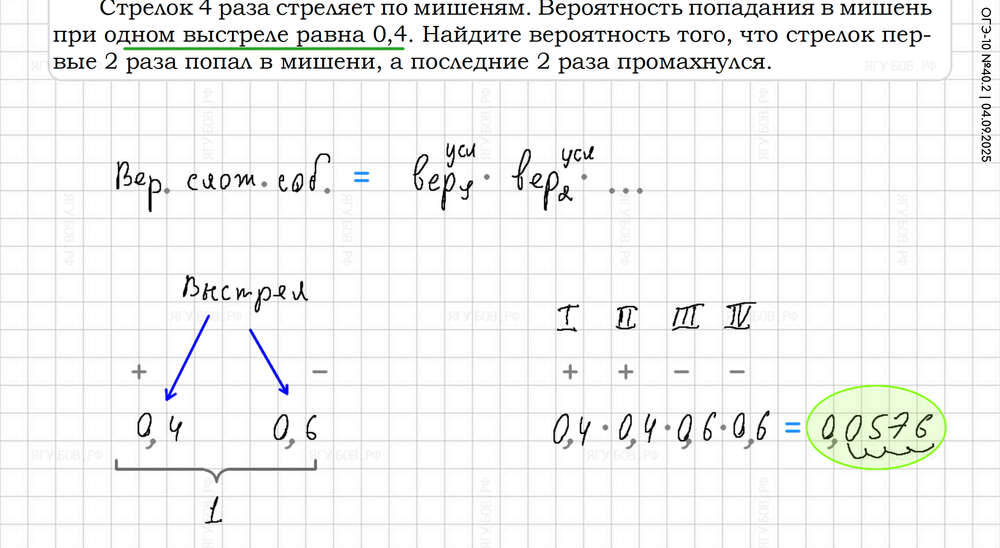 Стрелок 4 раза стреляет по мишеням. Вероятность попадания в мишень
при одном выстреле равна 0,4. Найдите вероятность того, что стрелок пер-
вые 2 раза попал в мишени, а последние 2 раза промахнулся.
ОГЭ-10 №40.2 | 04.09.2025
Вер. слож. соб. = вер₁ усл · вер₂ усл · ...
Выстрел
I II III IV
+ − + + − −
0,4 0,6 0,4 · 0,4 · 0,6 · 0,6 = 0,0576
1
ЯГУБОВ.РФ